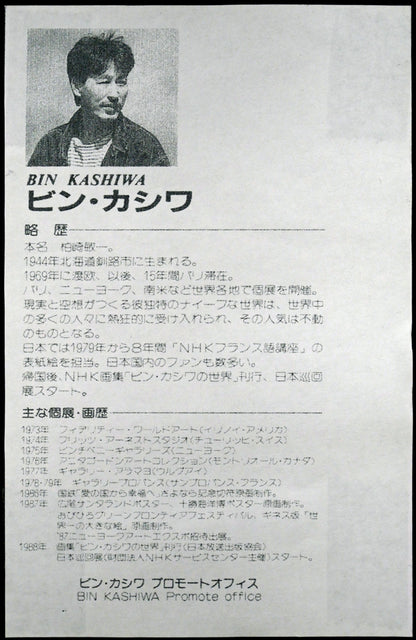 BIN KASHIWA
ビン・カシワ
略 歴
本名 柏崎敏一。
1944年北海道釧路市に生まれる。
1969年に渡欧、以後、15年間パリ滞在。
パリ、ニューヨーク、南米など世界各地で個展を開催。
現実と空想がつくる彼独特のナイーブな世界は、世界中
の多くの人々に熱狂的に受け入れられ、その人気は不動
のものとなる。
日本では1979年から8年間「NHKフランス語講座」の
表紙絵を担当。日本国内のファンも数多い。
帰国後、NHK画集「ビン・カシワの世界」刊行、日本巡回
展スタート。
主な個展・画歴
1973年 フィデリティー・ワールドアート(イリノイ・アメリカ)
1974年 フリッツ・アーネストスタジオ(チューリッヒ・スイス)
1975年 ビンチベニーギャラリーズ(ニューヨーク)
1976年 アニタゴードンアートコレクション(モントリオール・カナダ)
1977年 ギャラリー・アラマヨ(ウルグアイ)
1978・79年 ギャラリープロバンス(サンプロバンス・フランス)
1986年 国鉄「愛の国から幸福へ」さよなら記念切符原画制作。
1987年 広尾サンタランドポスター、十勝海洋博ポスター原画制作。
おびひろグリーンフロンティアフェスティバル、ギネス版「世
界一の大きな絵」原画制作。
'87ニューヨークアートエクスポ招待出展。
1988年 画集「ビン・カシワの世界」刊行(日本放送出版協会)
日本巡回展(財団法人NHKサービスセンター主催)スタート。
ビン・カシワ プロモートオフィス
BIN KASHIWA Promote office